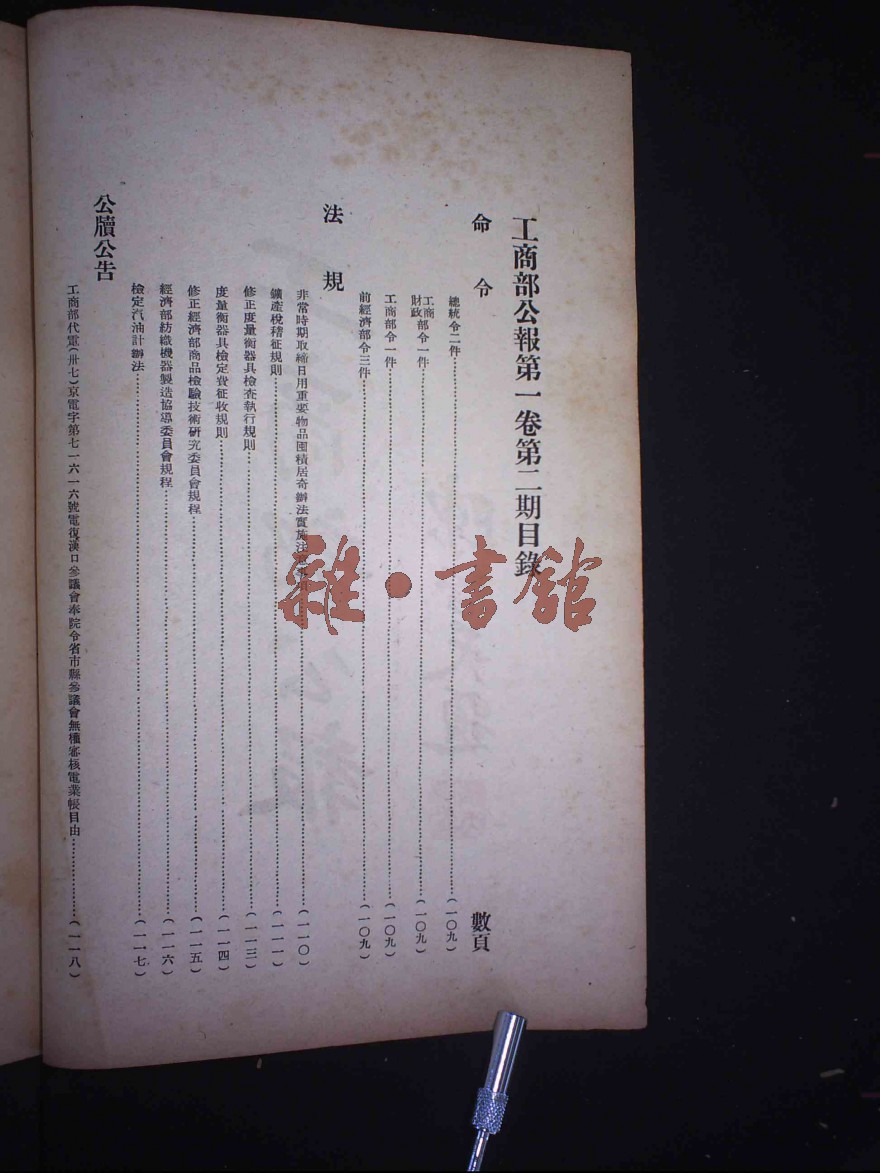 工商部公報第一卷第二期目錄
命令
頁數
總統令二件………(一〇九)
工商
財政部令一件………(一〇九)
工商部令一件………(一〇九)
前經濟部令三件………(一〇九)
法規
非常時期取締日用重要物品囤積居奇辦法實施注意………(一一〇)
鑛產稅稽征規則………(一一一)
修正度量衡器具檢查執行規則………(一一三)
度量衡器具檢定費征收規則………(一一四)
修正經濟部商品檢驗技術研究委員會規程………(一一五)
經濟部紡織機器製造協導委員會規程………(一一六)
檢定汽油計辦法………(一一七)
公牘公告
工商部代電(卅七)京電字第七一六一六號電復漢口參議會奉院令省市縣參議會無權審核電業帳目由………(一一八)
雜·書館